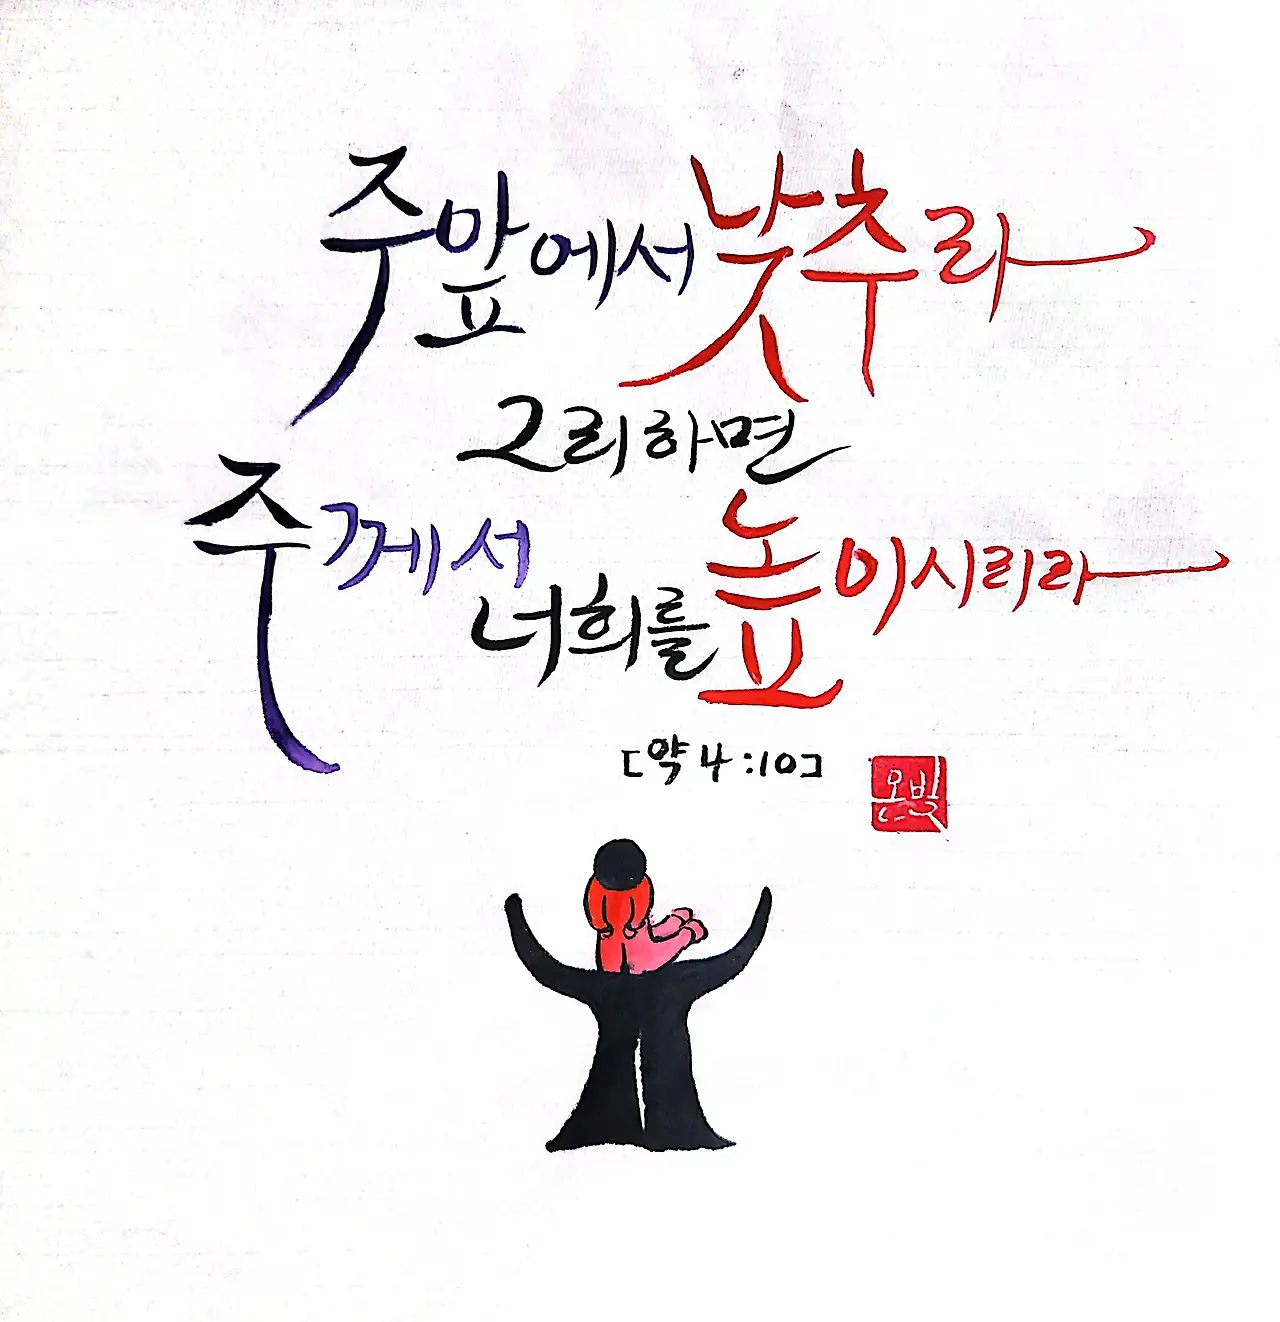 주앞에서 낮추라
그리하면
주께서
너희를 높이시리라
[약 4:10]
은빛